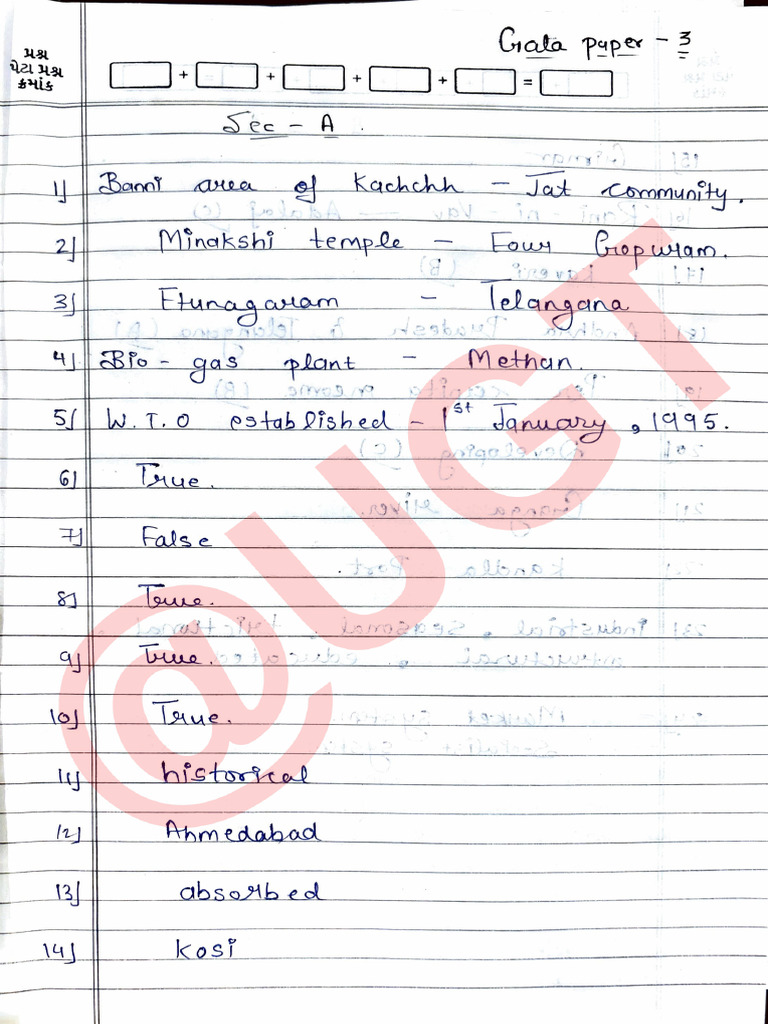 Gala paper - 3
પ્રશ્ન
પેટા પ્રશ્ન
ક્રમાંક
+ + + + =
Sec - A.
1] Banni area of Kachchh - Jat community.
2] Minakshi temple - Four Gopuram.
3] Etunagaram - Telangana
4] Bio-gas plant - Methan.
5] W.T.O established - 1st January, 1995.
6] True.
7] False
8] True.
9] True.
10] True.
11] historical
12] Ahmedabad
13] absorbed
14] Kosi
@UGT